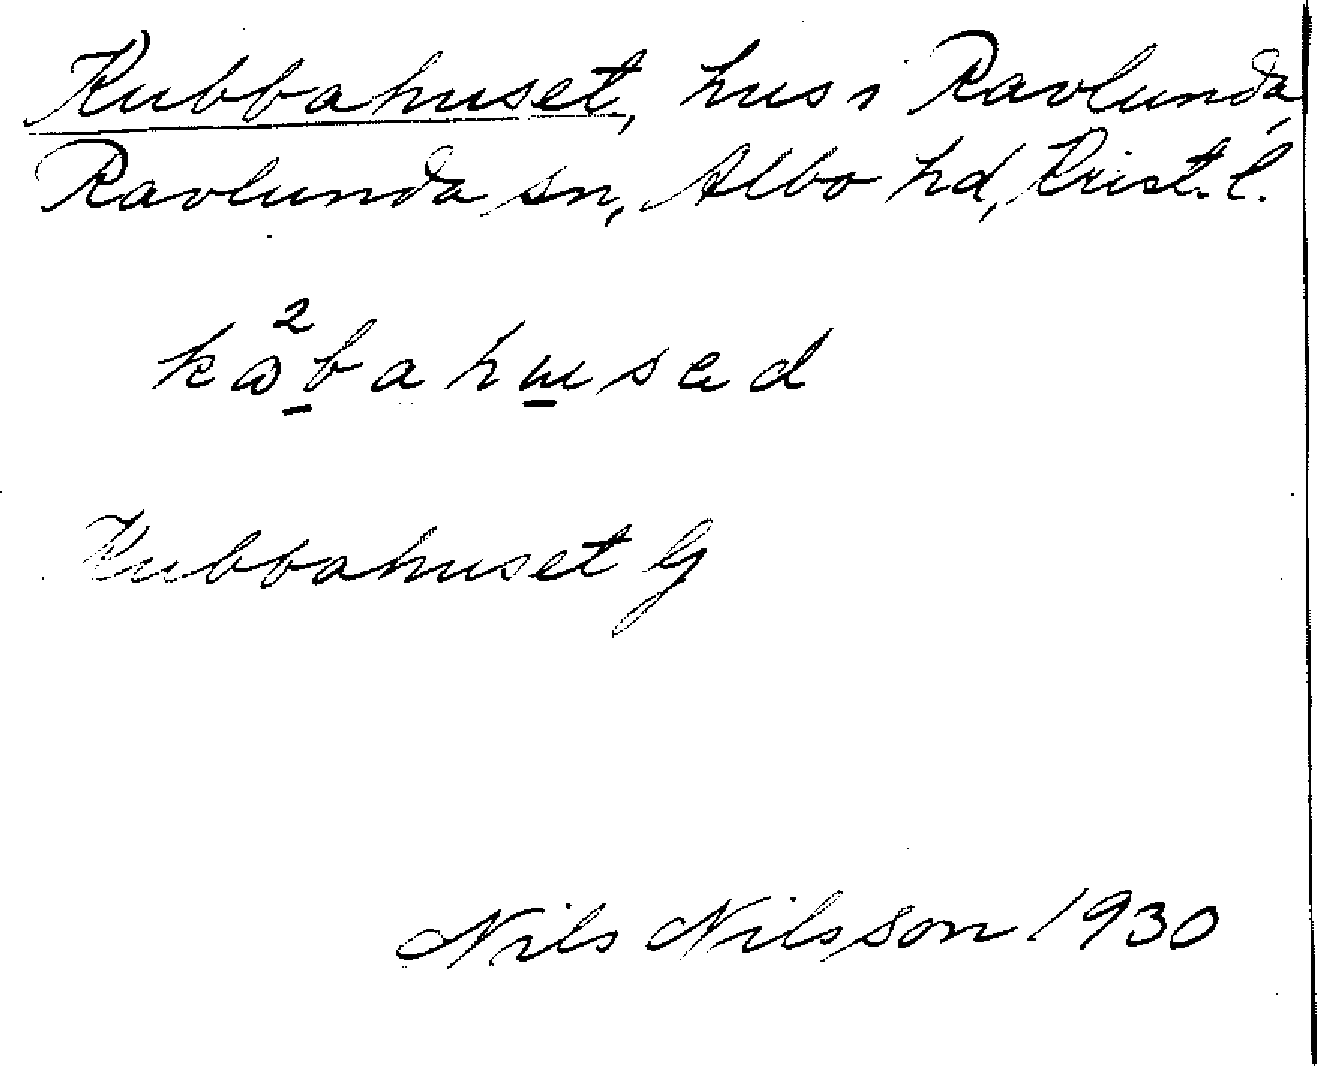 Kubbahuset, hus i Ravlunda,
Ravlunda sn, Albo hd, Krist. l.
Kubbahuset G
Nils Nilsson 1930